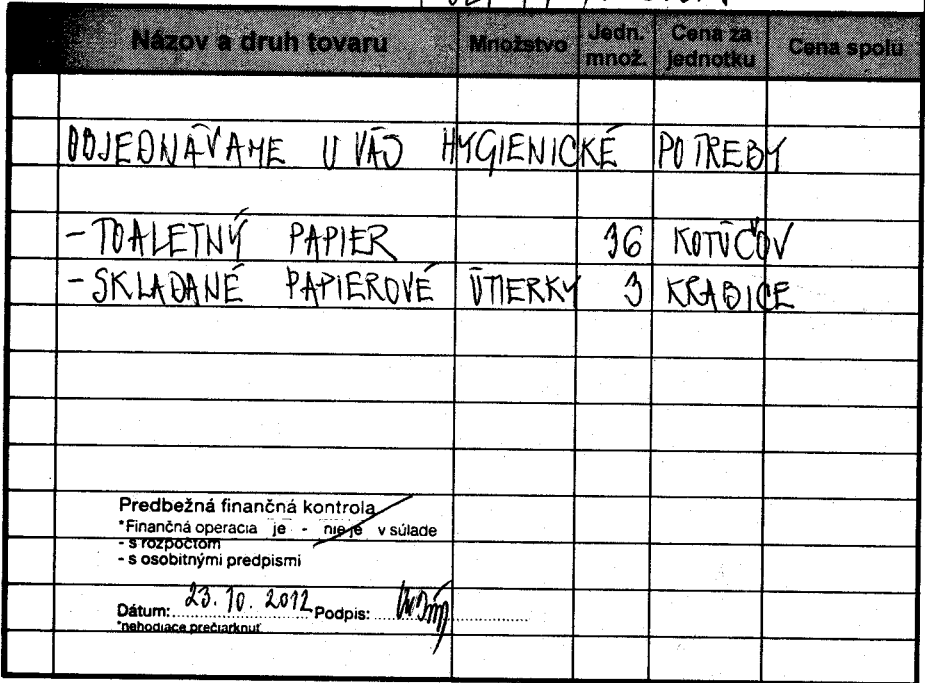 Názov a druh tovaru Množstvo Jedn. množ. Cena za jednotku Cena spolu
OBJEDNÁVAME U VÁS HYGIENICKÉ POTREBY
- TOALETNÝ PAPIER 36 KOTÚČOV
- SKLADANÉ PAPIEROVÉ ÚTIERKY 3 KRABICE
Predbežná finančná kontrola
*Finančná operacia je - nie je v súlade
- s rozpočtom
- s osobitnými predpismi
Dátum: 23.10.2012 Podpis:
*nehodiace prečiarknuť